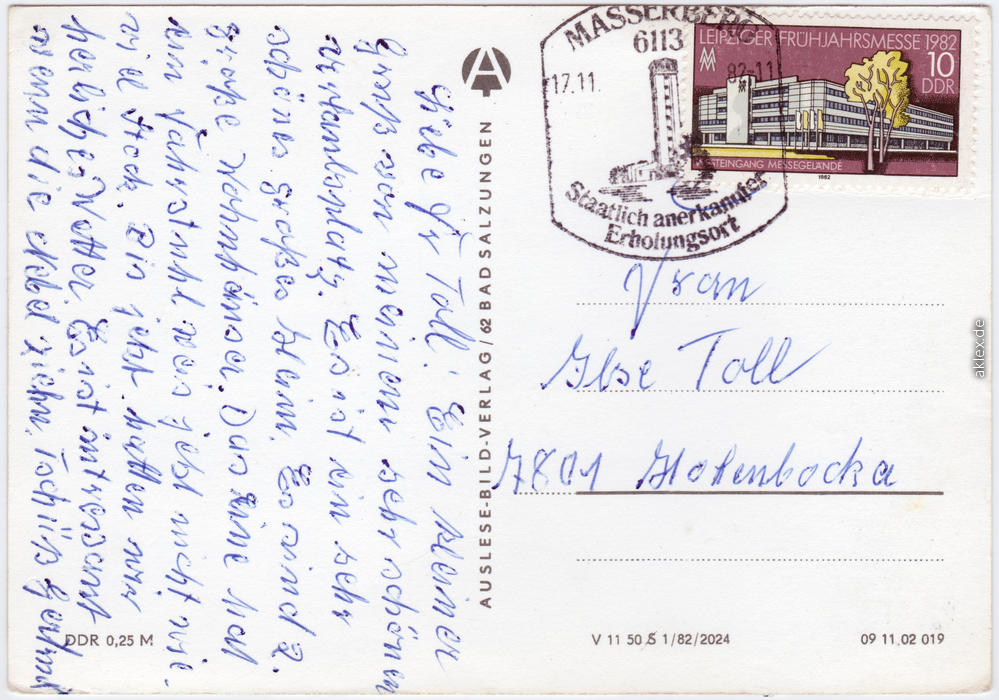 Liebe Fr Toll! Ein kleiner
Gruß von meinem sehr schönen
Urlaubsplatz. Es ist ein sehr
schönes großes Heim. Es sind 2
große Wohnhäuser. Das Eine hat
ein Fahrstuhl was jetzt nicht wie
viel Stock. Bis jetzt hatten wir
herliches Wetter. Es ist intressant
wenn die Nebel ziehn. Tschüß
AUSLESE-BILD-VERLAG/62 BAD SALZUNGEN
MASSERBERG
6113
17.11. 82-11
Staatlich anerkannter
Erholungsort
LEIPZIGER FRÜHJAHRSMESSE 1982
MM
10
DDR
OSTEINGANG MESSEGELÄNDE
1982
Frau
Ilse Toll
7801 Hohenbocka
akpool.de
DDR 0,25 M
V 11 50 S 1/82/2024
09 11 02 019